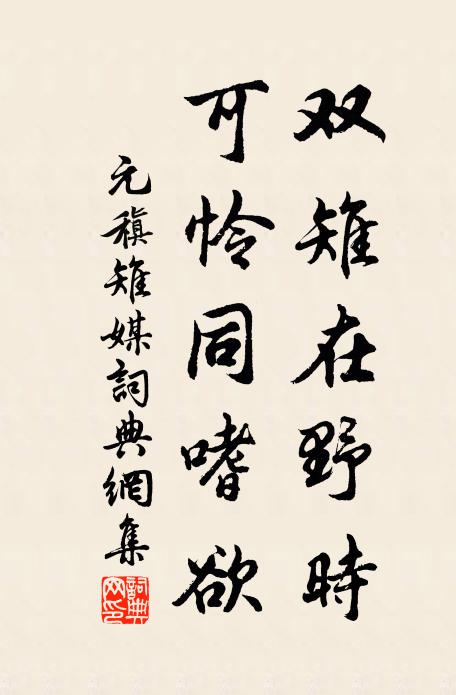 双雉在野時
可怜同嗜欲
元稹雉媒詞典網集
詞典網印